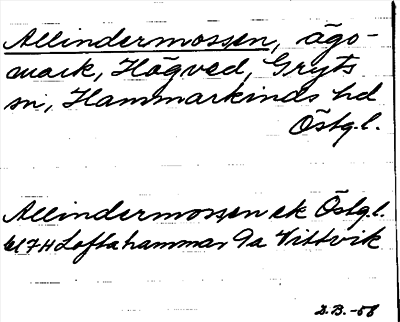 Allindermossen, ägo-
mark, Högved, Gryts
sn, Hammarkinds hd
Östg.l.
Allindermossen ek Östg.l.
bl 7H Loftahammar 9a Vittvik
D.B. -58